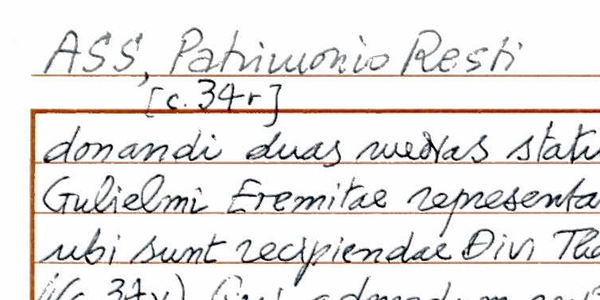 ASS, Patrimonio Resti
[c. 34r]
donandi duas statu
Gulielmi Eremitae representa
ubi sunt recipiendae Divi
(c. 34v)